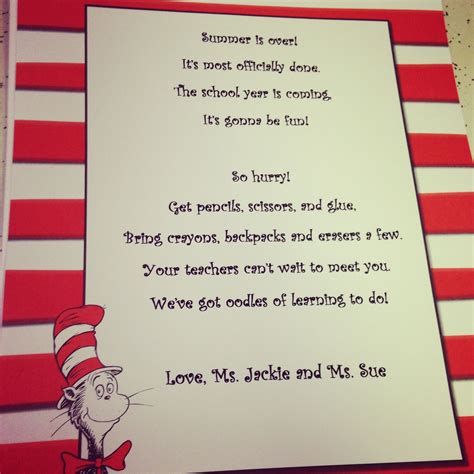 Summer is over!
It's most officially done.
The school year is coming,
It's gonna be fun!
So hurry!
Get pencils, scissors, and glue,
Bring crayons, backpacks and erasers a few.
Your teachers can't wait to meet you.
We've got oodles of learning to do!
Love, Ms. Jackie and Ms. Sue